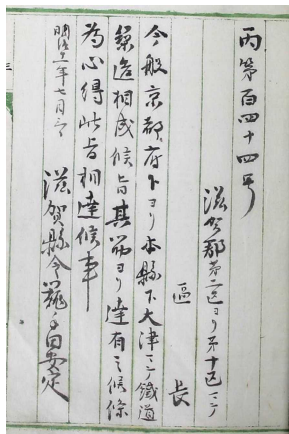 丙第百四十四号
滋賀郡第二区ヨリ第十区マデ
區長
今般京都府下ヨリ本縣下大津マデ鐵道
築造相成候旨其筋ヨリ達有之候條
為心得此旨相達候事
明治十一年七月三日
滋賀縣令籠手田安定